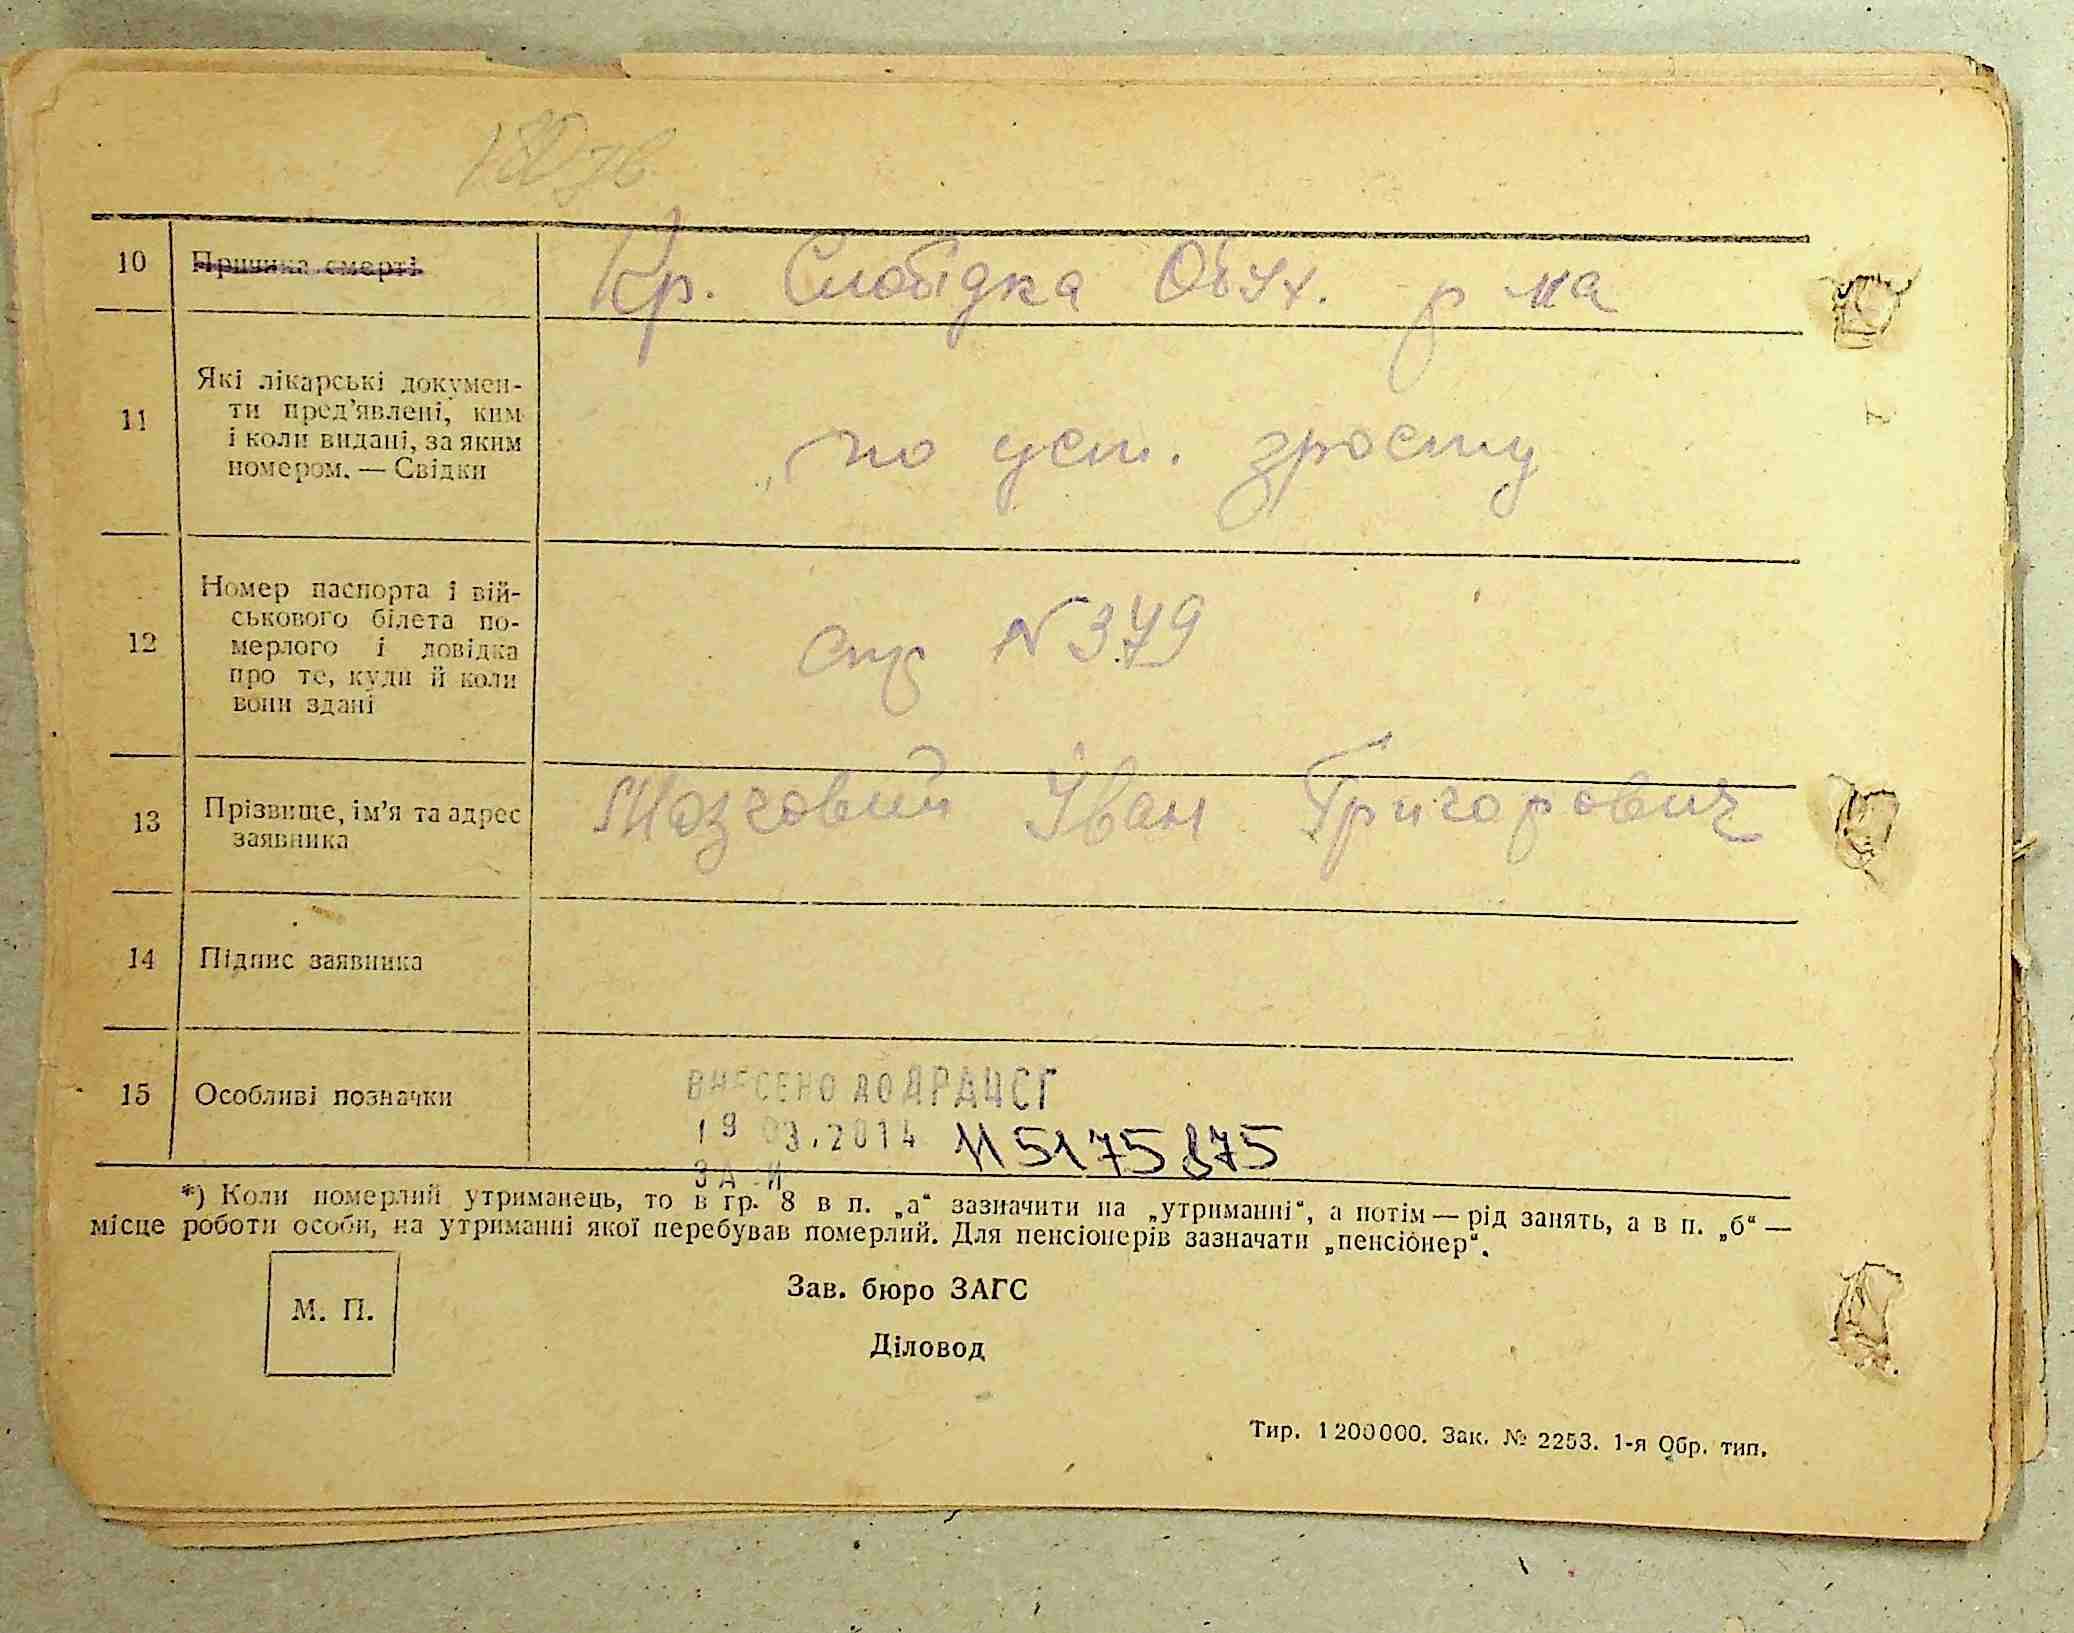 10 Причина смерті Кр. Слобідка Обух. р-на
11 Які лікарські докумен-
ти пред'явлені, ким
і коли видані, за яким
номером. — Свідки
по уст. зросту
12 Номер паспорта і вій-
ськового білета по-
мерлого і довідка
про те, куди й коли
вони здані
стр N 379
13 Прізвище, ім'я та адрес
заявника
Мозговий Іван Григорович
14 Підпис заявника
15 Особливі позначки
ВНЕСЕНО ДО ДРАЦСГ
19 03.2014 115175875
*) Коли померлий утриманець, то в гр. 8 в п. „а“ зазначити на „утриманні“, а потім — рід занять, а в п. „б“ —
місце роботи особи, на утриманні якої перебував померлий. Для пенсіонерів зазначати „пенсіонер“.
М. П.
Зав. бюро ЗАГС
Діловод
Тир. 1200000. Зак. № 2253. 1-я Обр. тип.